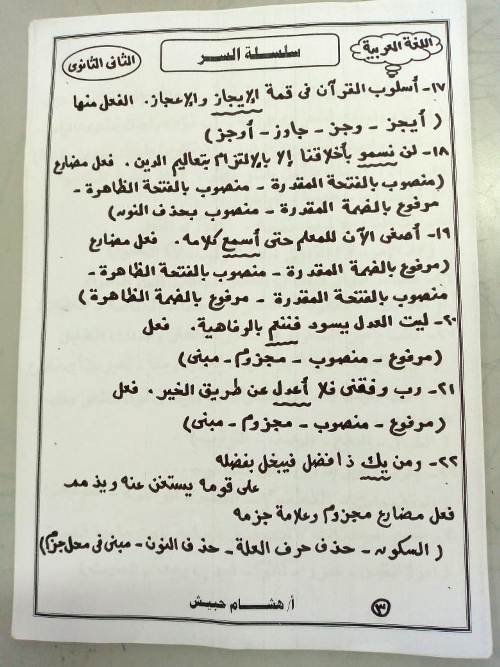 اللغة العربية
سلسلة السر
الثانى الثانوى
١٧- أسلوب القرآن فى قمة الإيجاز والإعجاز. الفعل منها
( أيجز - وجز - جاوز - أوجز )
١٨- لن نسمو بأخلاقنا إلا بالإلتزام بتعاليم الدين. فعل مضارع
(منصوب بالفتحة المقدرة - منصوب بالفتحة الظاهرة -
مرفوع بالضمة المقدرة - منصوب بحذف النون)
١٩- أصغى الآن للمعلم حتى أسمع كلامه. فعل مضارع
(مرفوع بالضمة المقدرة - منصوب بالفتحة الظاهرة -
منصوب بالفتحة المقدرة - مرفوع بالضمة الظاهرة)
٢٠- ليت العدل يسود فننعم بالرفاهية. فعل
(مرفوع - منصوب - مجزوم - مبنى)
٢١- رب وفقنى فلا أعدل عن طريق الخير. فعل
(مرفوع - منصوب - مجزوم - مبنى)
٢٢- ومن يك ذا فضل فيبخل بفضله
على قومه يستغن عنه ويذمم
فعل مضارع مجزوم وعلامة جزمه
( السكون - حذف حرف العلة - حذف النون - مبنى فى محل جزم)
أ/ هشام حبيش
٣